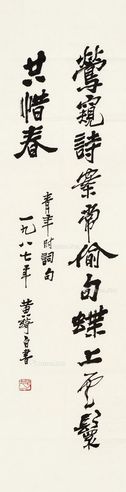 鶯窺詩案常偷句蝶上雲鬟
共惜春
青年時詞句
一九八七年 黄綺自書